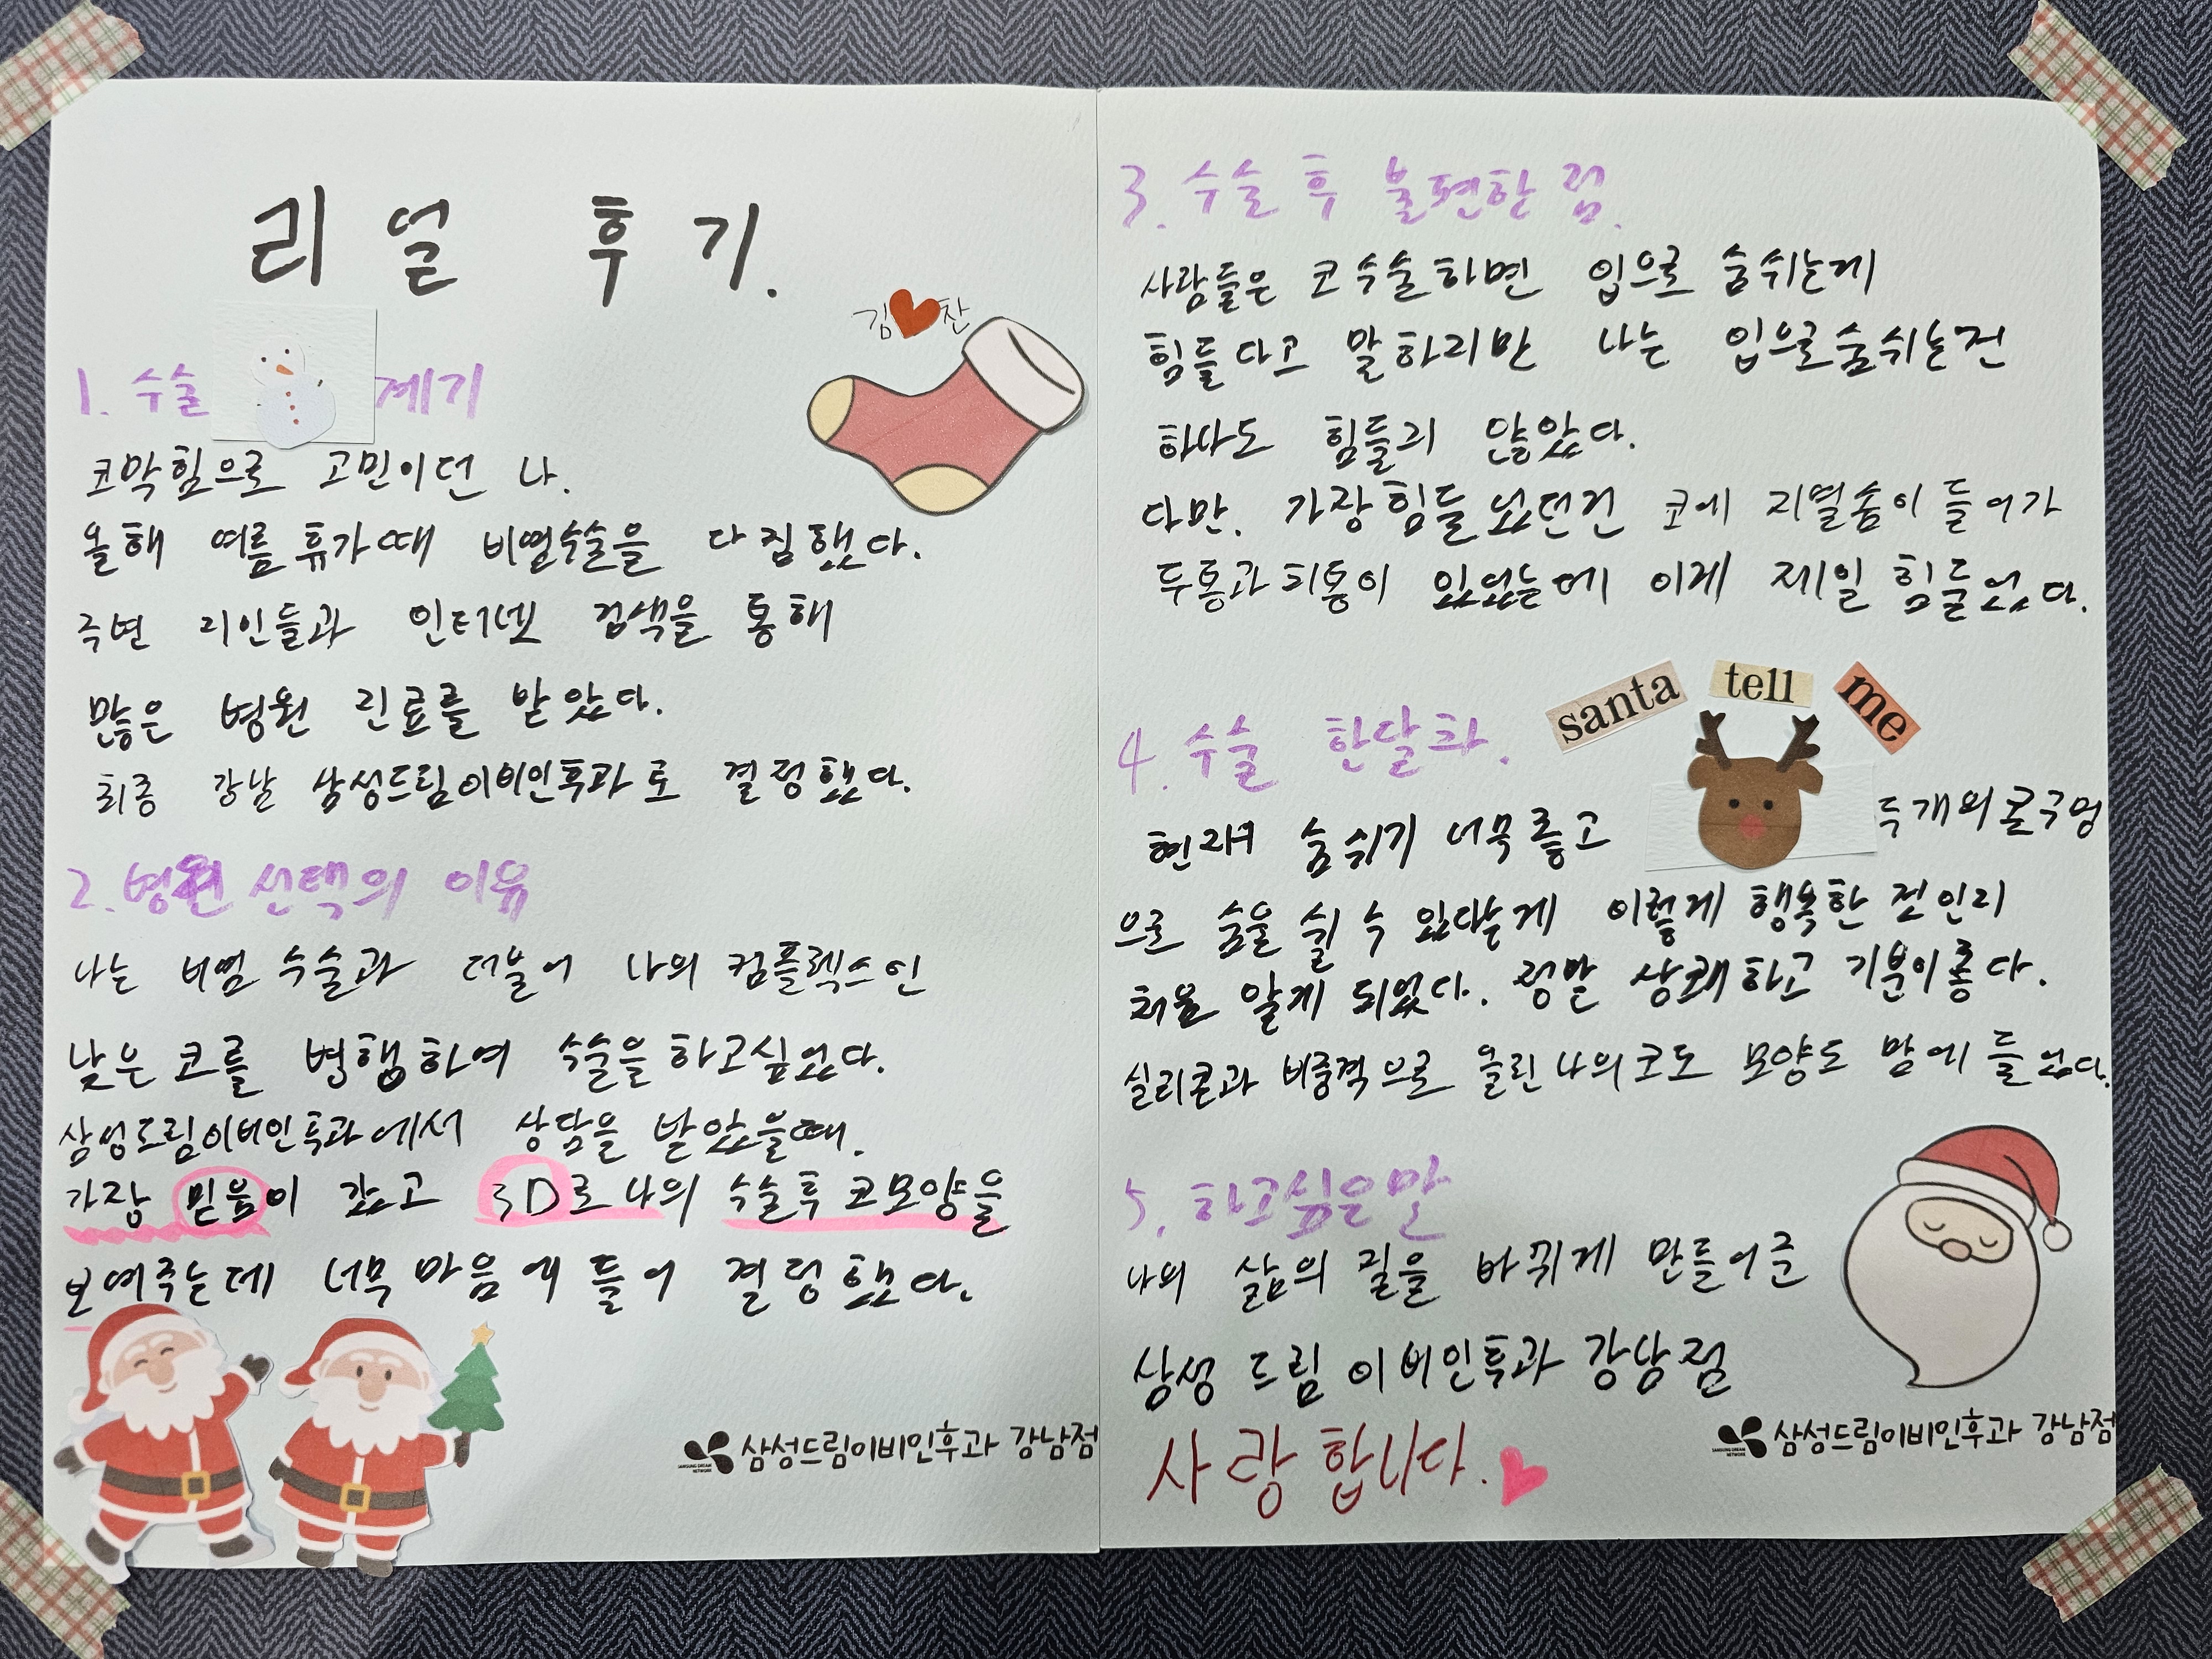 리얼 후기.
김 찬
1. 수술 계기
코막힘으로 고민이던 나.
올해 여름 휴가때 비염수술을 다짐했다.
주변 지인들과 인터넷 검색을 통해
많은 병원 진료를 받았다.
최종 강남 삼성드림이비인후과로 결정했다.
2. 병원 선택의 이유
나는 비염 수술과 더불어 나의 컴플렉스인
낮은 코를 병행하여 수술을 하고싶었다.
삼성드림이비인후과에서 상담을 받았을때.
가장 믿음이 갔고 3D로 나의 수술후 코모양을
보여주는데 너무 마음에 들어 결정했다.
SAMSUNG DREAM NETWORK
삼성드림이비인후과 강남점
3. 수술 후 불편한 점.
사람들은 코수술하면 입으로 숨쉬는게
힘들다고 말하지만 나는 입으로숨쉬는건
하나도 힘들지 않았다.
다만. 가장 힘들었던건 코에 지혈솜이 들어가
두통과 치통이 있었는데 이게 제일 힘들었다.
santa tell me
4. 수술 한달차.
현재 숨쉬기 너무좋고 두개의콧구멍
으로 숨을 쉴 수 있다는게 이렇게 행복한 것인지
처음 알게 되었다. 정말 상쾌하고 기분이좋다.
실리콘과 비중격으로 올린 나의코도 모양도 맘에 들었다.
5. 하고싶은말
나의 삶의 질을 바뀌게 만들어준
삼성 드림 이비인후과 강남점
사랑합니다.
SAMSUNG DREAM NETWORK
삼성드림이비인후과 강남점